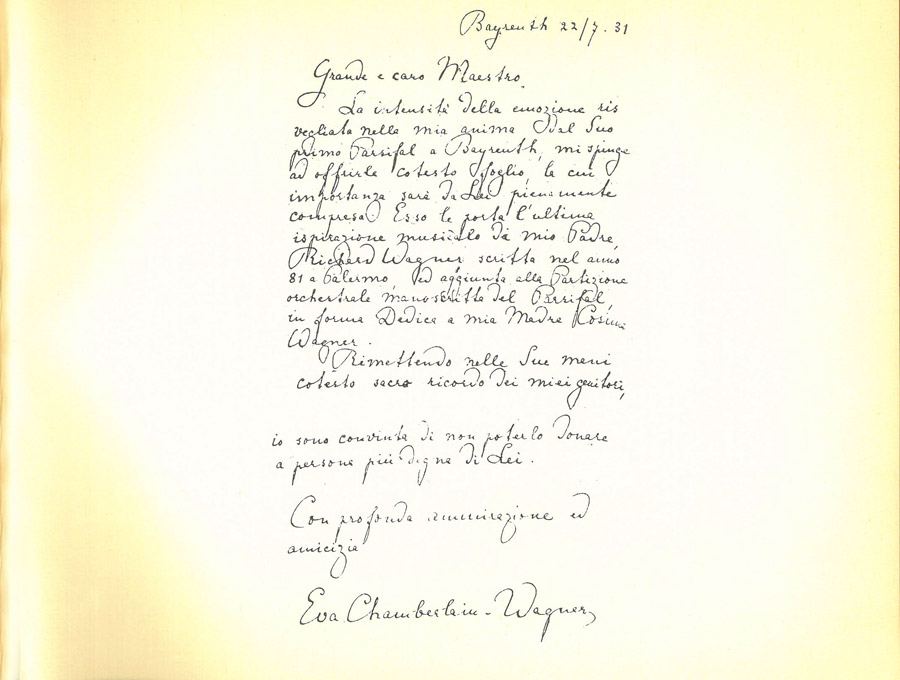 Bayreuth 22/7. 31
Grande e caro Maestro.
La intensità della emozione ris
vegliata nella mia anima dal Suo
primo Parsifal a Bayreuth, mi spinge
ad offrirle cotesto foglio, la cui
importanza sarà da Lei pienamente
compresa. Esso le porta l'ultima
ispirazione musicale di mio Padre,
Richard Wagner scritta nel anno
81 a Palermo, ed aggiunta alla Partizione
orchestrale manoscritta del Parsifal,
in forma Dedica a mia Madre Cosima
Wagner.
Rimettendo nelle Sue mani
cotesto sacro ricordo dei miei genitori,
io sono convinta di non poterlo donare
a persona più degna di Lei.
Con profonda ammirazione ed
amicizia
Eva Chamberlain-Wagner